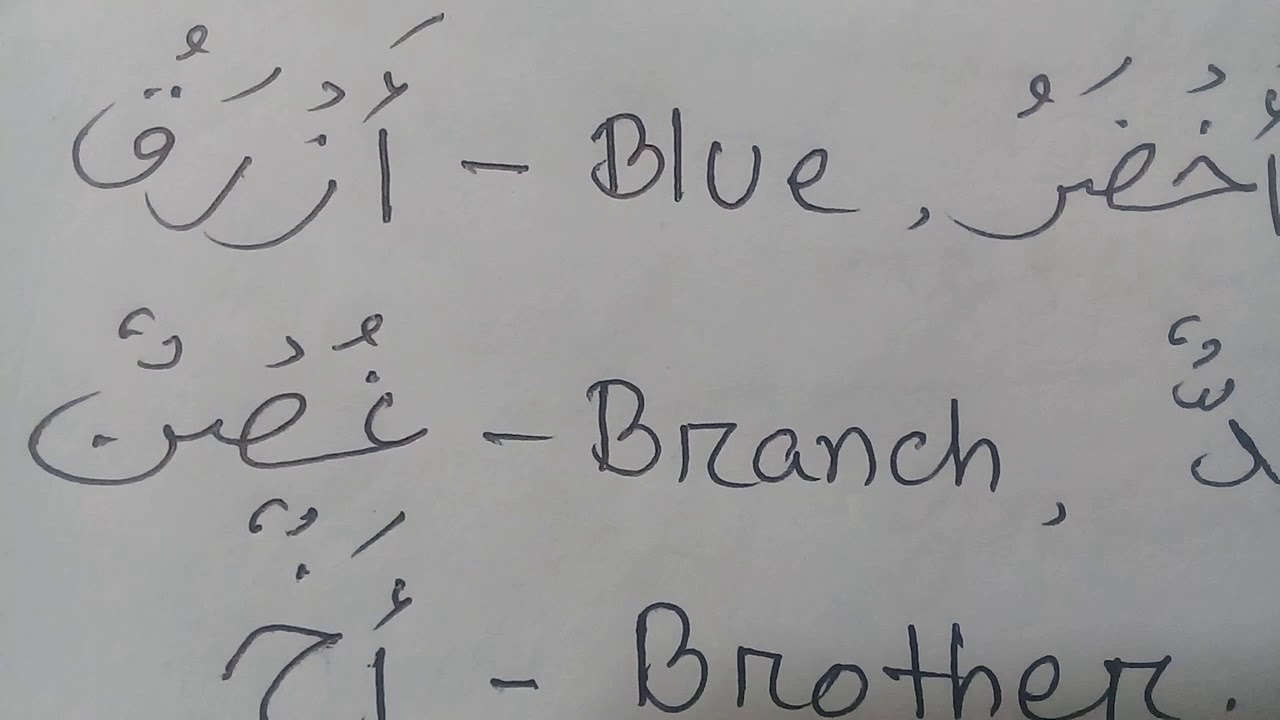 أَزْرَقُ - Blue, أَخْضَرُ
غُصْنٌ - Branch,
أَخٌ - Brother.